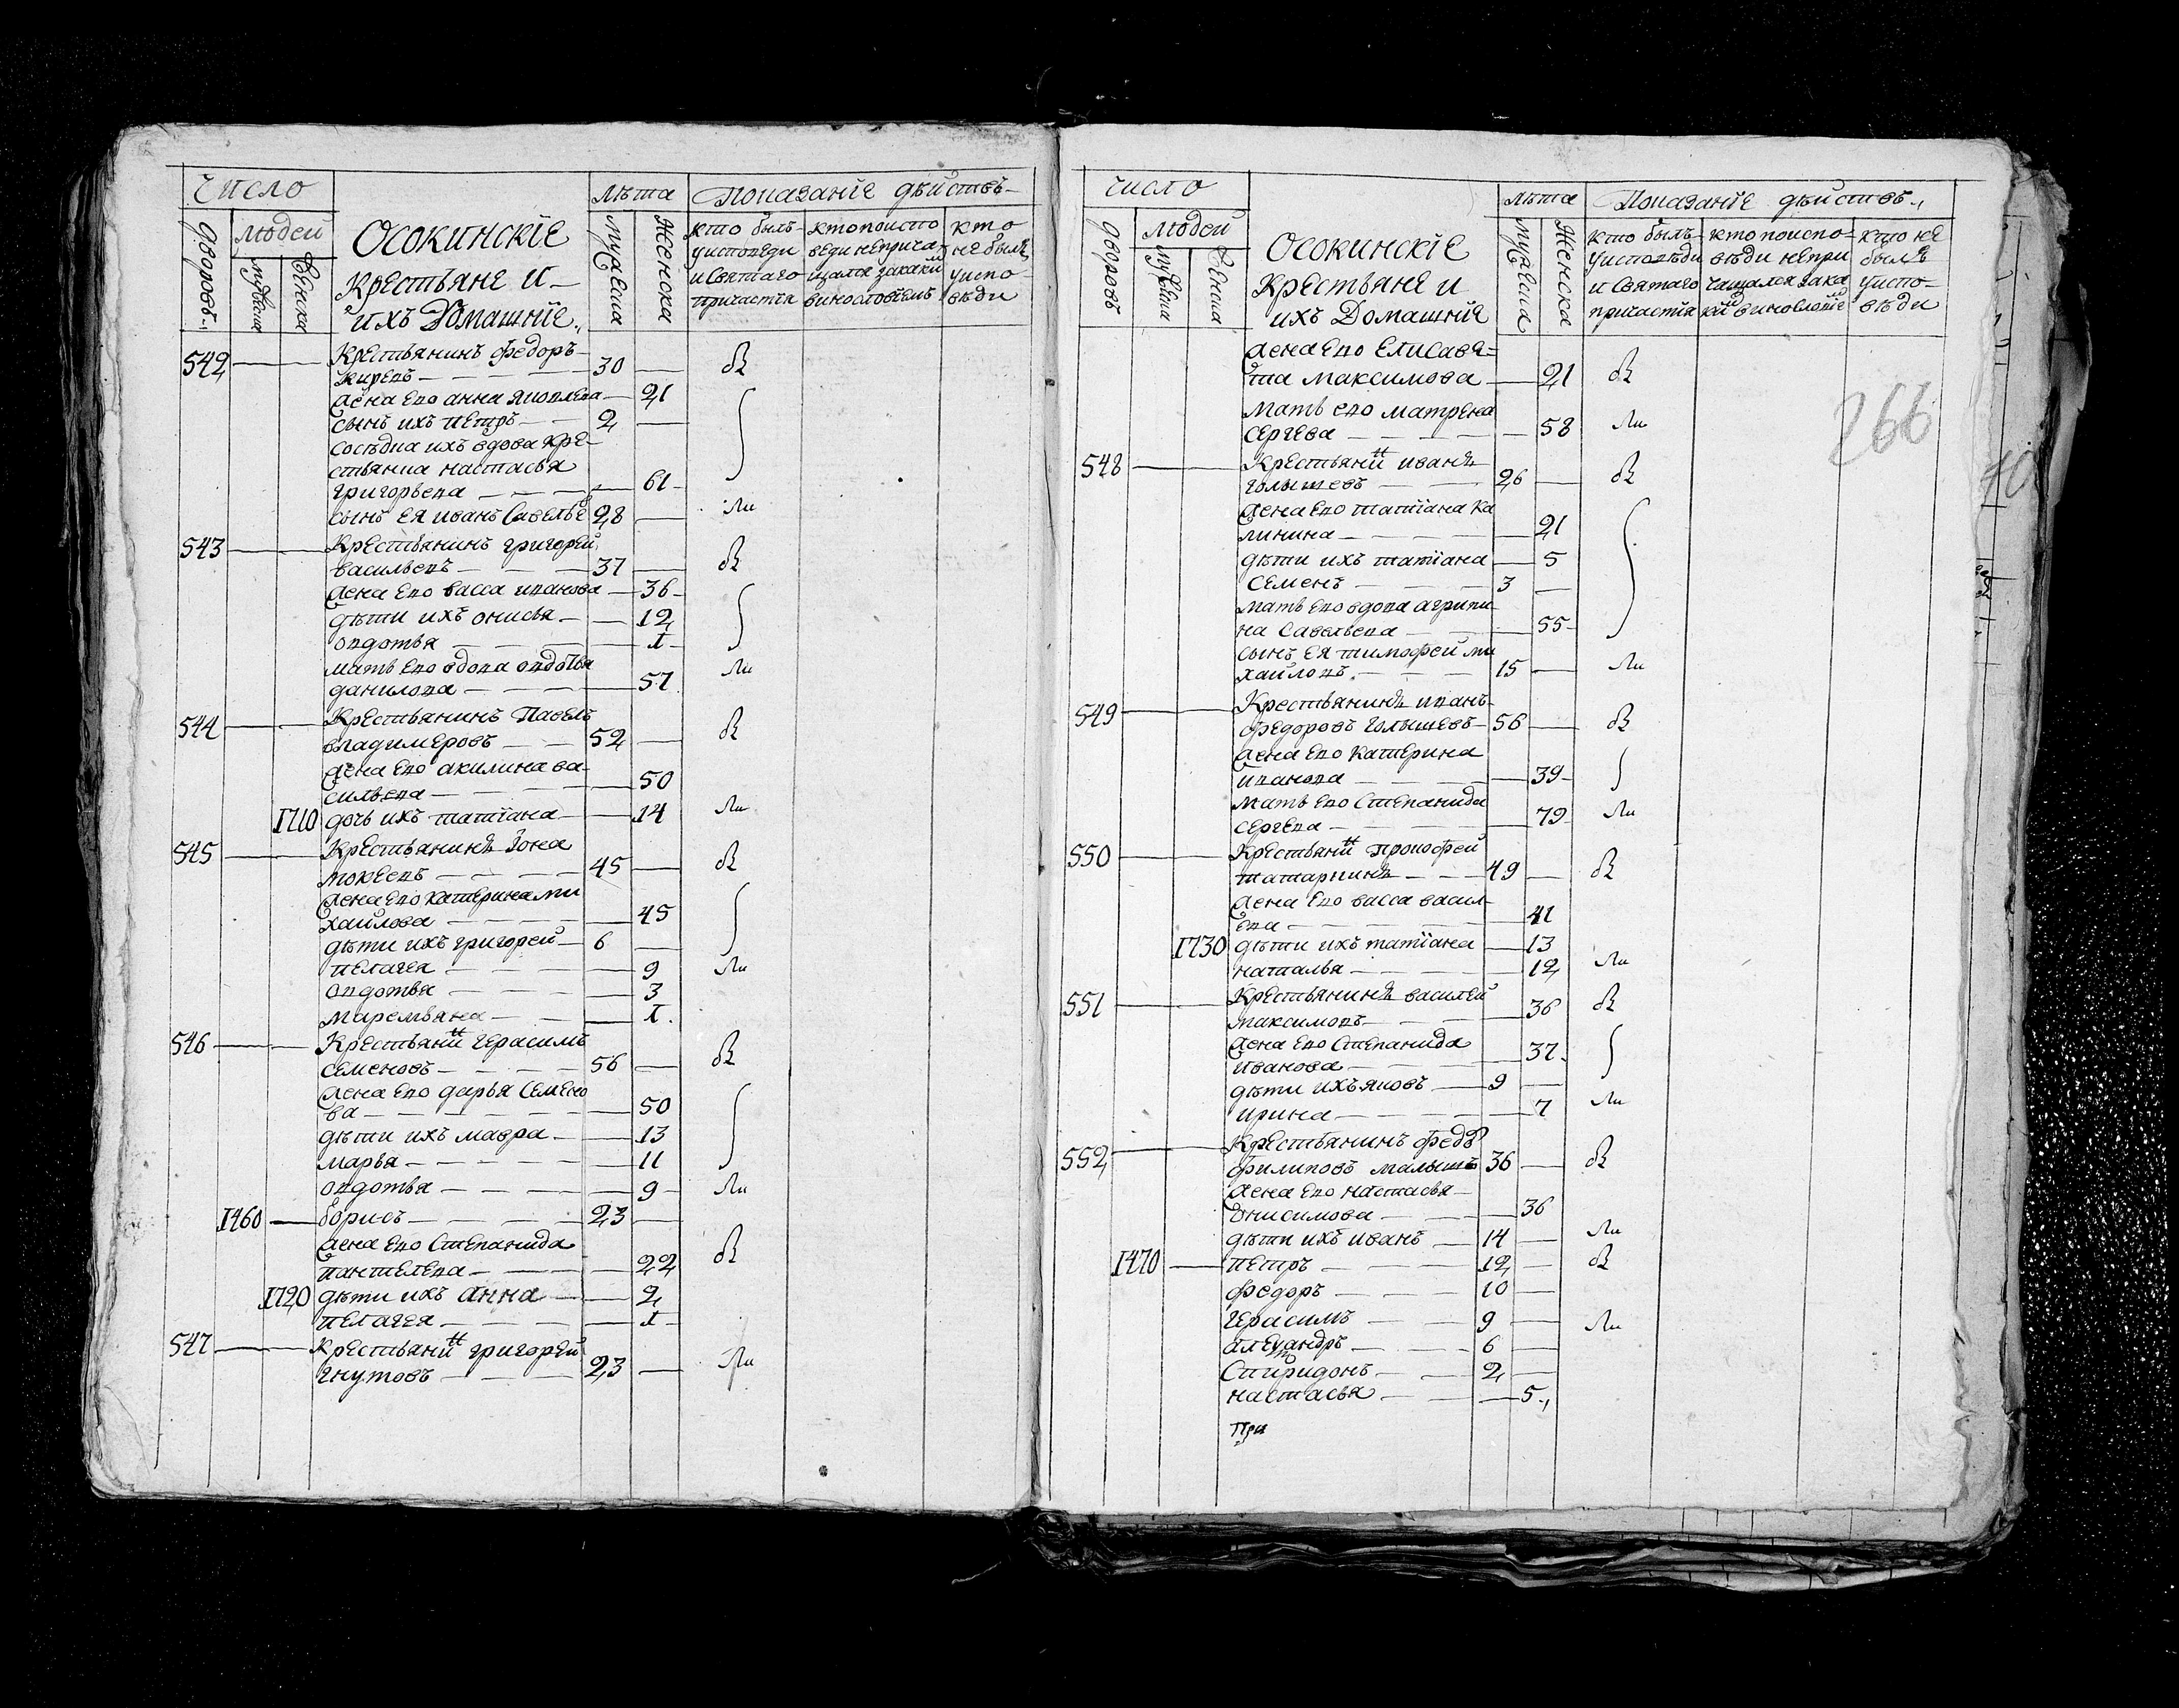 Число
Лѣта Показанїе дѣйствъ
Дворовъ
Людей
Мужеска
Женска
Осокинскїе
Крестьяне и
ихъ Домашнїе
Мужеска
Женска
кто былъ
у исповеди
и святаго
причастїя
кто по испо
веди не прича
щался за какїй
виносло
кто
не былъ
у испо-
вѣди
542 Крестьянинъ Федоръ
30
Жена его Анна Яковлева 21
сынъ ихъ Петръ 2
сосѣдка ихъ вдова кре-
стьянка Настасья
Григорьева 61
сынъ ея Иванъ Савелье 28
543 Крестьянинъ Григорей
Васильевъ 37
Жена его Васса Иванова 36
дѣти ихъ Онисья 12
Овдотья 1
мать его вдова Овдотья
Данилова 57
544 Крестьянинъ Павелъ
Владимеровъ 52
Жена его Акилина Ва-
сильева 50
1710 дочь ихъ Татїана 14
545 Крестьянинъ Іона
Мокеевъ 45
Жена его Катерина Ми
хайлова 45
дѣти ихъ Григорей 6
Пелагея 9
Овдотья 3
Маремьяна 1
546 Крестьянинъ Герасимъ
Семеновъ 56
Жена его Дарья Семено
ва 50
дѣти ихъ Мавра 13
Марья 11
Овдотья 9
1460 Борисъ 23
Жена его Степанида
Пантелева 22
1720 дѣти ихъ Анна 2
Пелагея 1
547 Крестьянинъ Григорей
Гнутовъ 23
Число
Лѣта Показанїе дѣйствъ
Дворовъ
Людей
Мужеска
Женска
Осокинскїе
Крестьяне и
ихъ Домашнїе
Мужеска
Женска
кто былъ
у исповѣди
и святаго
причастїя
кто по испо-
вѣди не при
чащался за ка
кїй виновловїе
кто не
былъ
у испо-
вѣди
Жена его Елисаве=
та Максимова 21
266
мать его Матрена
Сергева 58
548 Крестьянинъ Иванъ
Голышевъ 26
Жена его Татїана Ка
линина 21
дѣти ихъ Татїана 5
Семенъ 3
мать его вдова Агрипи
на Савельева 55
сынъ ея Тимофей Ми
хайловъ 15
549 Крестьянинъ Иванъ
Федоровъ Голышевъ 56
Жена его Катерина
Иванова 39
мать его Степанида
Сергева 79
550 Крестьянинъ Прокофей
Татаркинъ 49
Жена его Васса Васил-
ева 41
1730 дѣти ихъ Татїана 13
Наталья 12
551 Крестьянинъ Василей
Максимовъ 36
Жена его Степанида
Иванова 37
дѣти ихъ Яковъ 9
Ирина 7
552 Крестьянинъ Федо
Филиповъ Малышъ 36
Жена его Настасья
Онисимова 36
дѣти ихъ Иванъ 14
1470 Петръ 12
Федоръ 10
Герасимъ 9
Александръ 6
Спиридонъ 2
Настасья 5
При